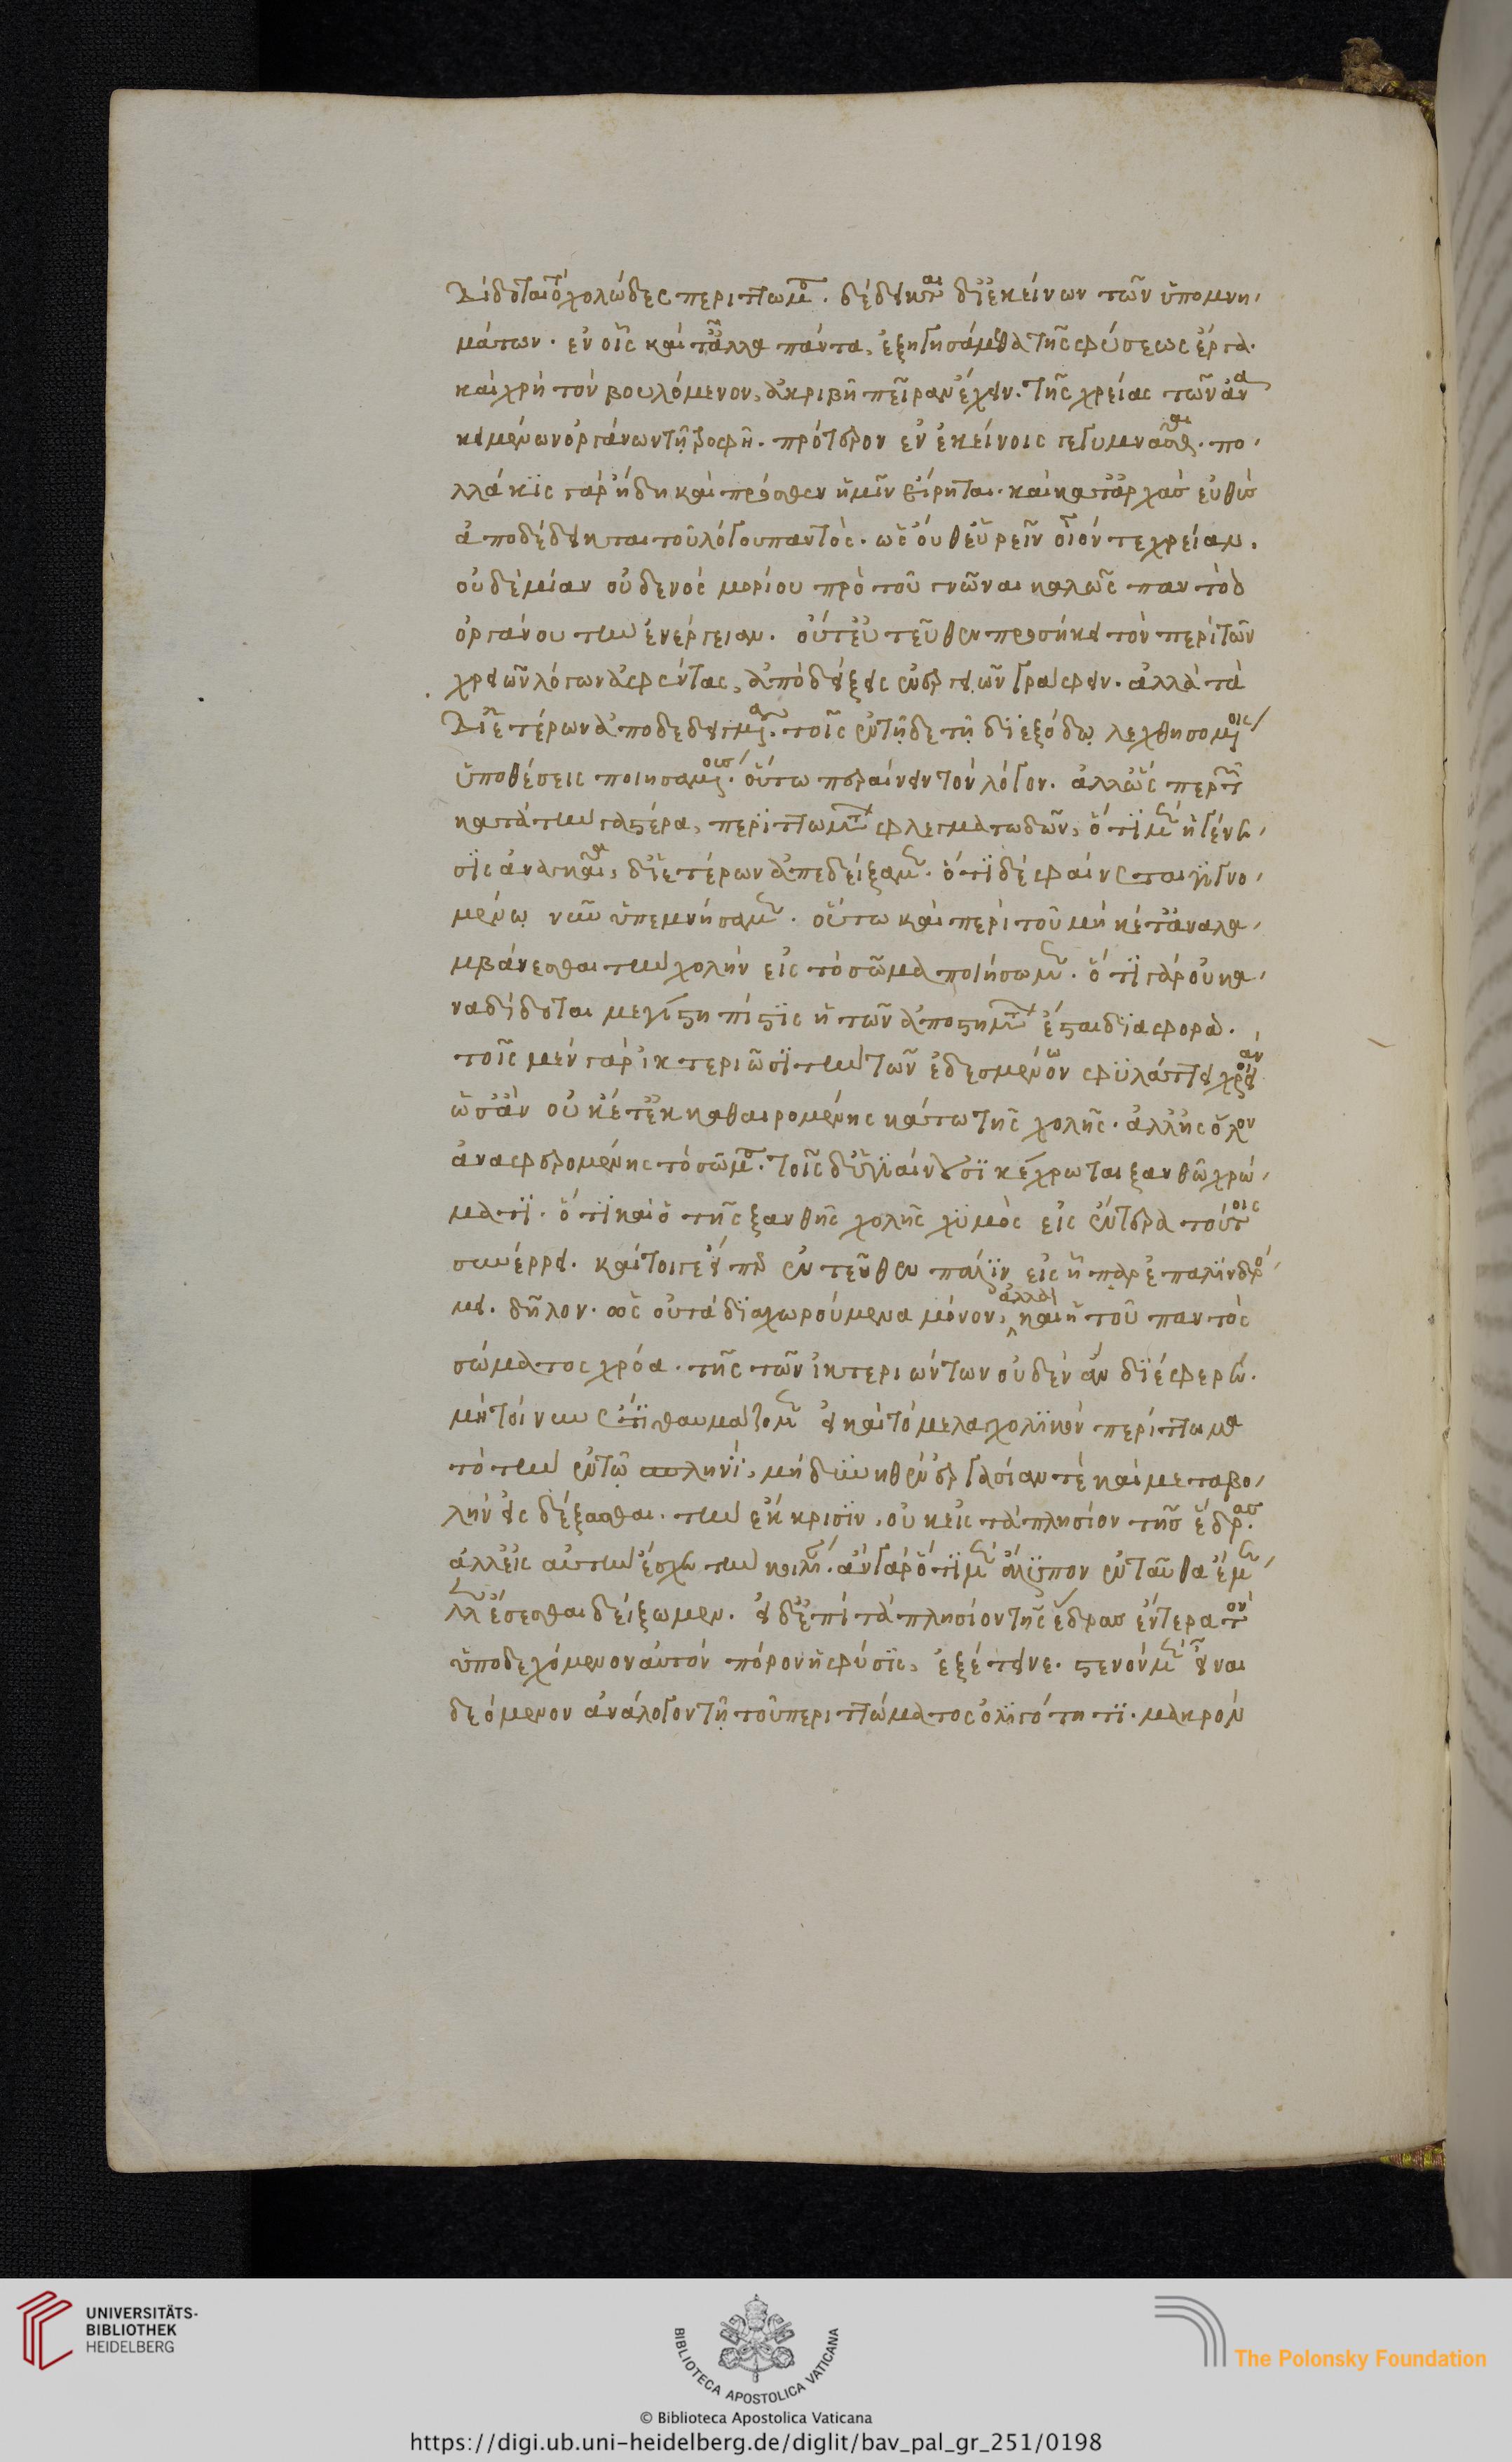 δίδοται τὸ χολῶδες περίττωμα. δέδεικται δι' ἐκείνων τῶν ὑπομνη
μάτων. ἐν οἷς καὶ τἄλλα πάντα, ἐξηγησάμεθα τῆς φύσεως ἔργα.
καὶ χρὴ τὸν βουλόμενον, ἀκριβῆ πεῖραν ἔχειν. τῆς χρείας τῶν ἀνα
κειμένων ὀργάνων τῇ τροφῇ. πρότερον ἐν ἐκείνοις γεγυμνάσθαι. πο
λλάκις γὰρ ἤδη καὶ πρόσθεν ἡμῖν εἴρηται. καὶ κατ' ἀρχὰς εὐθὺς
ἀποδέδεικται τοῦ λόγου παντὸς. ὡς οὔθ' εὑρεῖν οἷόν τε χρείαν.
οὐδεμίαν οὐδενὸς μορίου πρὸ τοῦ γνῶναι καλῶς παντὸς
ὀργάνου τὴν ἐνέργειαν. οὔτ' ἐντεῦθεν προσήκει τὸν περὶ τῶν
χρειῶν λόγον ἀφέντας, ἀποδείξεις ἐνεργειῶν γράφειν. ἀλλὰ τὰ
δι' ἑτέρων ἀποδεδειγμένα. τοῖς ἐν τῇδε τῇ διεξόδῳ λεχθησομένοις
ὑποθέσεις ποιησαμένους. οὕτω περαίνειν τὸν λόγον. ἀλλ' ὥσπερ τῶν
κατὰ τὴν γαστέρα, περιττωμάτων φλεγματωδῶν, ὅτι μὲν ἡ γένε
σις ἀναγκαία, δι' ἑτέρων ἀπεδείξαμεν. ὅτι δὲ φαίνεται γιγνο
μένῳ νῦν ὑπεμνήσαμεν. οὕτω καὶ περὶ τοῦ μηκέτ' ἀναλα
μβάνεσθαι τὴν χολὴν εἰς τὸ σῶμα ποιήσωμεν. ὅτι γὰρ οὐκ ἀ
ναδίδοται μεγίστη πίστις ἡ τῶν ἀποπατημάτων ἔσται διαφορά.
τοῖς μὲν γὰρ ἰκτεριῶσι τὴν τῶν ἐδεσμένων φυλάττει χρόαν
ὡς ἂν οὐκέτ' ἐκκαθαιρομένης κάτω τῆς χολῆς. ἀλλ' εἰς ὅλον
ἀναφερομένης τὸ σῶμα. τοῖς δ' ὑγιαίνουσι κέχρωται ξανθῷ χρώ
ματι. ὅτι καὶ ὁ τῆς ξανθῆς χολῆς χυμὸς εἰς ἔντερα τούτοις
συνέρρει. καίτοι γ' εἴπερ ἐντεῦθεν πάλιν εἰς ἧπαρ ἐπαλινδρό
μει. δῆλον. ὡς οὐ τὰ διαχωρούμενα μόνον, ἀλλὰ καὶ ἡ τοῦ παντὸς
σώματος χρόα. τῆς τῶν ἰκτεριώντων οὐδὲν ἂν διέφερεν.
μὴ τοίνυν ἔτι θαυμάζωμεν εἰ καὶ τὸ μελαγχολικὸν περίττωμα
τὸ τὴν ἐν τῷ σπληνὶ, μὴ δυνηθὲν ἐργασίαν τὲ καὶ μεταβο
λὴν εἰσδέξασθαι. τὴν ἔκκρισιν, οὐκ εἰς τὰ πλησίον τῆς ἕδρας.
ἀλλ' εἰς αὐτὴν ἔσχε τὴν κοιλίαν. ἂν γὰρ ὅτι μὲν ἄλυπον ἐνταῦθα ἔμε
λλεν ἔσεσθαι δείξωμεν. εἰ δ' ἐπὶ τὰ πλησίον τῆς ἕδρας ἔντερα τὸν
ὑποδεχόμενον αὐτὸν πόρον ἡ φύσις, ἐξέτεινε. στενὸν μὲν εἶναι
δεόμενον ἀνάλογον τῇ τοῦ περιττώματος ὀλιγότητι. μακρὸν
UNIVERSITÄTS-
BIBLIOTHEK
HEIDELBERG
BIBLIOTECA APOSTOLICA VATICANA
The Polonsky Foundation
© Biblioteca Apostolica Vaticana
https://digi.ub.uni-heidelberg.de/diglit/bav_pal_gr_251/0198